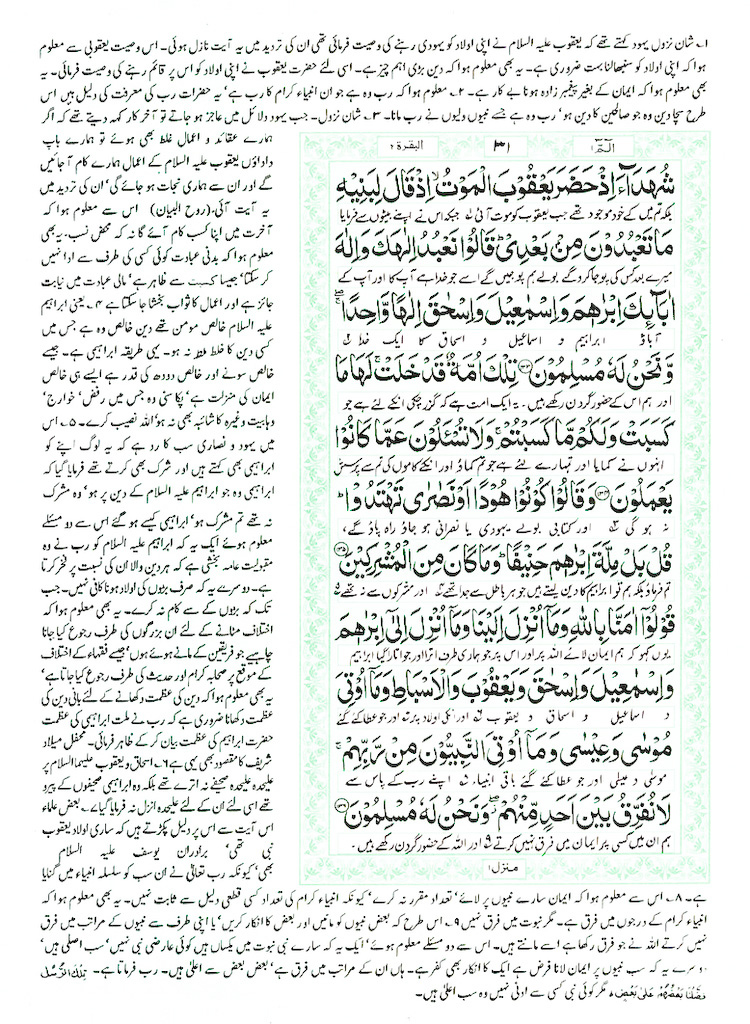 ۱؎ شان نزول یہود کہتے تھے کہ یعقوب علیہ السلام نے اپنی اولاد کو یہودی رہنے کی وصیت فرمائی تھی ان کی تردید میں یہ آیت نازل ہوئی۔ اس وصیت یعقوبی سے معلوم
ہوا کہ اپنی اولاد کو سنبھالنا بہت ضروری ہے۔ یہ بھی معلوم ہوا کہ دین بڑی اہم چیز ہے۔ اسی لئے حضرت یعقوب نے اپنی اولاد کو اس پر قائم رہنے کی وصیت فرمائی۔ یہ
بھی معلوم ہوا کہ ایمان کے بغیر پیغمبر زادہ ہونا بے کار ہے۔ ۲؎ معلوم ہوا کہ رب وہ ہے جو ان انبیاء کرام کا رب ہے' یہ حضرات رب کی معرفت کی دلیل ہیں اس
طرح سچا دین وہ جو صالحین کا دین ہو' رب وہ ہے جسے نبیوں ولیوں نے رب مانا۔ ۳؎ شان نزول۔ جب یہود دلائل میں عاجز ہو جاتے تو آخر کار کہہ دیتے تھے کہ اگر
ہمارے عقائد و اعمال غلط بھی ہوئے تو ہمارے باپ
داداؤں یعقوب علیہ السلام کے اعمال ہمارے کام آجائیں
گے اور ان سے ہماری نجات ہو جائے گی' ان کی تردید میں
یہ آیت آئی۔ (روح البیان) اس سے معلوم ہوا کہ
آخرت میں اپنا کسب کام آئے گا نہ کہ محض نسب۔ یہ بھی
معلوم ہوا کہ بدنی عبادت کوئی کسی کی طرف سے ادا نہیں
کر سکتا' جیسا کسبت سے ظاہر ہے' مالی عبادت میں نیابت
جائز ہے اور اعمال کا ثواب بخشا جا سکتا ہے ۴؎ یعنی ابراہیم
علیہ السلام خالص مومن تھے دین خالص وہ ہے جس میں
کسی دین کا خلط ملط نہ ہو۔ یہی طریقہ ابراہیمی ہے۔ جیسے
خالص سونے اور خالص دودھ کی قدر ہے ایسے ہی خالص
ایمان کی منزلت ہے' پکا سنی وہ جس میں رفض' خوارج'
وہابیت وغیرہ کا شائبہ بھی نہ ہو' اللہ نصیب کرے۔ ۵؎ اس
میں یہود و نصاریٰ سب کا رد ہے کہ یہ لوگ اپنے کو
ابراہیمی بھی کہتے ہیں اور شرک بھی کرتے تھے فرمایا گیا کہ
ابراہیمی وہ جو ابراہیم علیہ السلام کے دین پر ہو' وہ مشرک
نہ تھے تم مشرک ہو' ابراہیمی کیسے ہو گئے اس سے دو مسئلے
معلوم ہوئے ایک یہ کہ ابراہیم علیہ السلام کو رب نے وہ
مقبولیت عامہ بخشی ہے کہ ہر دین والا ان کی نسبت پر فخر کرتا
ہے۔ دوسرے یہ کہ صرف بڑوں کی اولاد ہونا کافی نہیں۔ جب
تک کہ بڑوں کے سے کام نہ کرے۔ یہ بھی معلوم ہوا کہ
اختلاف مٹانے کے لئے ان بزرگوں کی طرف رجوع کیا جانا
چاہیے جو فریقین کے مانے ہوئے ہوں' جیسے فقہاء کے اختلاف
کے موقع پر صحابہ کرام اور حدیث کی طرف رجوع کیا جاتا ہے'
یہ بھی معلوم ہوا کہ دین کی عظمت دکھانے کے لئے بانی دین کی
عظمت دکھانا ضروری ہے کہ رب نے ملت ابراہیمی کی عظمت
حضرت ابراہیم کی عظمت بیان کر کے ظاہر فرمائی۔ محفل میلاد
شریف کا مقصود بھی یہی ہے ۶؎ اسحاق و یعقوب علیہما السلام پر
علیحدہ علیحدہ صحیفے نہ اترے تھے بلکہ وہ ابراہیمی صحیفوں کے پیرو
تھے اسی لئے ان کے لئے علیحدہ انزل نہ فرمایا گیا ۷؎ بعض علماء
اس آیت سے اس پر دلیل پکڑتے ہیں کہ ساری اولاد یعقوب
نبی تھی' برادران یوسف علیہ السلام
بھی' کیونکہ رب تعالیٰ نے ان سب کو سلسلہ انبیاء میں گنایا
الٓمّٓ ۱ ۳۱ البقرة ۲
شُهَدَآءَ اِذْ حَضَرَ يَعْقُوْبَ الْمَوْتُ ۙ اِذْ قَالَ لِبَنِيْهِ
بلکہ تم میں کے خود موجود تھے جب یعقوب کو موت آئی جبکہ اس نے اپنے بیٹوں سے فرمایا
مَا تَعْبُدُوْنَ مِنْۢ بَعْدِيْ ؕ قَالُوْا نَعْبُدُ اِلٰهَكَ وَاِلٰهَ
میرے بعد کس کی پوجا کرو گے بولے ہم پوجیں گے اسے جو خدا ہے آپ کا اور آپ کے
اٰبَآئِكَ اِبْرٰهٖمَ وَاِسْمٰعِيْلَ وَاِسْحٰقَ اِلٰهًا وَّاحِدًا ۖۚ
آباؤ ابراہیم و اسماعیل و اسحاق کا ایک خدا
وَّنَحْنُ لَهٗ مُسْلِمُوْنَ ۝۱۳۳ تِلْكَ اُمَّةٌ قَدْ خَلَتْ ۚ لَهَا مَا
اور ہم اس کے حضور گردن رکھے ہیں۔ یہ ایک امت ہے کہ گزر چکی انکے لئے ہے جو
كَسَبَتْ وَلَكُمْ مَّا كَسَبْتُمْ ۚ وَلَا تُسْـَٔلُوْنَ عَمَّا كَانُوْا
انہوں نے کمایا اور تمہارے لئے ہے جو تم کماؤ اور انکے کاموں کی تم سے پرسش
يَعْمَلُوْنَ ۝۱۳۴ وَقَالُوْا كُوْنُوْا هُوْدًا اَوْ نَصٰرٰى تَهْتَدُوْا ؕ
نہ ہو گی اور کتابی بولے یہودی یا نصرانی ہو جاؤ راہ پاؤ گے،
قُلْ بَلْ مِلَّةَ اِبْرٰهٖمَ حَنِيْفًا ؕ وَمَا كَانَ مِنَ الْمُشْرِكِيْنَ ۝۱۳۵
تم فرماؤ بلکہ ہم تو ابراہیم کا دین لیتے ہیں جو ہر باطل سے جدا تھے اور مشرکوں سے نہ تھے
قُوْلُوْٓا اٰمَنَّا بِاللّٰهِ وَمَآ اُنْزِلَ اِلَيْنَا وَمَآ اُنْزِلَ اِلٰٓى اِبْرٰهٖمَ
یوں کہو کہ ہم ایمان لائے اللہ پر اور اس پر جو ہماری طرف اترا اور جو اتارا گیا ابراہیم
وَاِسْمٰعِيْلَ وَاِسْحٰقَ وَيَعْقُوْبَ وَالْاَسْبَاطِ وَمَآ اُوْتِيَ
و اسماعیل و اسحاق و یعقوب اور انکی اولاد پر اور جو عطا کئے گئے
مُوْسٰى وَعِيْسٰى وَمَآ اُوْتِيَ النَّبِيُّوْنَ مِنْ رَّبِّهِمْ ۚ
موسٰی و عیسٰی اور جو عطا کئے گئے باقی انبیاء اپنے رب کے پاس سے
لَا نُفَرِّقُ بَيْنَ اَحَدٍ مِّنْهُمْ ۖ وَنَحْنُ لَهٗ مُسْلِمُوْنَ ۝۱۳۶
ہم ان میں کسی پر ایمان میں فرق نہیں کرتے اور اللہ کے حضور گردن رکھے ہیں۔
منزل ۱
ہے۔ ۸؎ اس سے معلوم ہوا کہ ایمان سارے نبیوں پر لائے' تعداد مقرر نہ کرے' کیونکہ انبیاء کرام کی تعداد کسی قطعی دلیل سے ثابت نہیں۔ یہ بھی معلوم ہوا کہ
انبیاء کرام کے درجوں میں فرق ہے۔ مگر نبوت میں فرق نہیں ۹؎ اس طرح کہ بعض نبیوں کو مانیں اور بعض کا انکار کریں' یا اپنی طرف سے نبیوں کے مراتب میں فرق
نہیں کرتے اللہ نے جو فرق رکھا ہے اسے مانتے ہیں۔ اس سے دو مسئلے معلوم ہوئے' ایک یہ کہ سارے نبی نبوت میں یکساں ہیں کوئی عارضی نبی نہیں' سب اصلی ہیں'
دوسرے یہ کہ سب نبیوں پر ایمان لانا فرض ہے ایک کا انکار بھی کفر ہے۔ ہاں ان کے مراتب میں فرق ہے' بعض بعض سے اعلیٰ ہیں۔ رب فرماتا ہے۔ تِلْكَ الرُّسُلُ
فَضَّلْنَا بَعْضَهُمْ عَلٰى بَعْضٍ ۘ مگر کوئی نبی کسی سے ادنیٰ نہیں وہ سب اعلیٰ ہیں۔